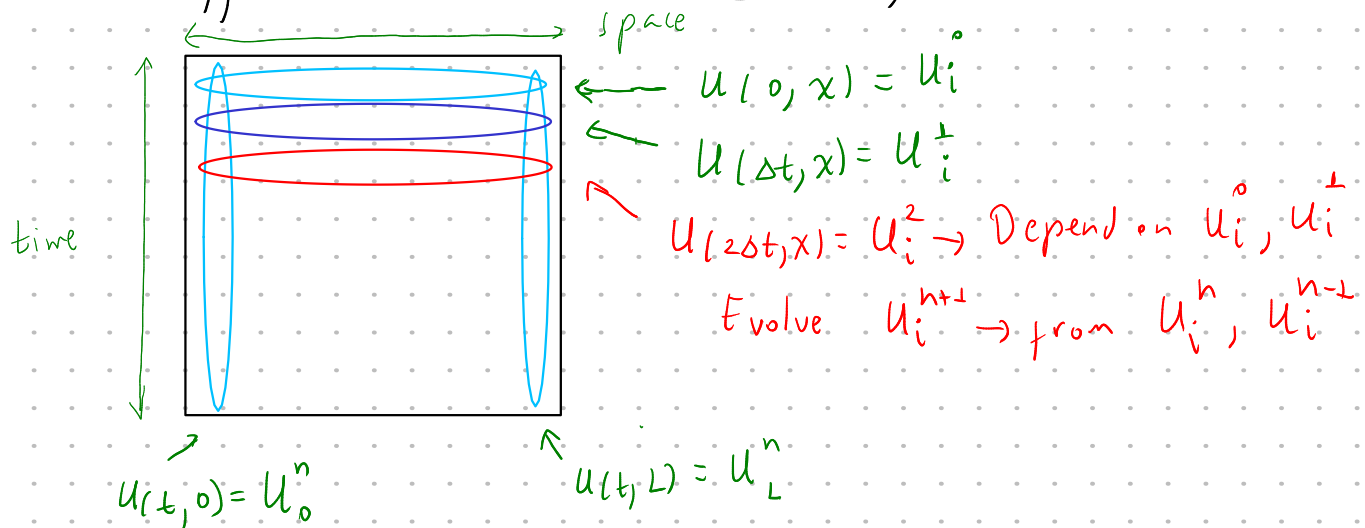 space
u(0, x) = u_i^0
u(Δt, x) = u_i^1
time
u(2Δt, x) = u_i^2 → Depend on u_i^0, u_i^1
Evolve u_i^{n+1} → from u_i^n, u_i^{n-1}
u(t, 0) = u_0^n
u(t, L) = u_L^n